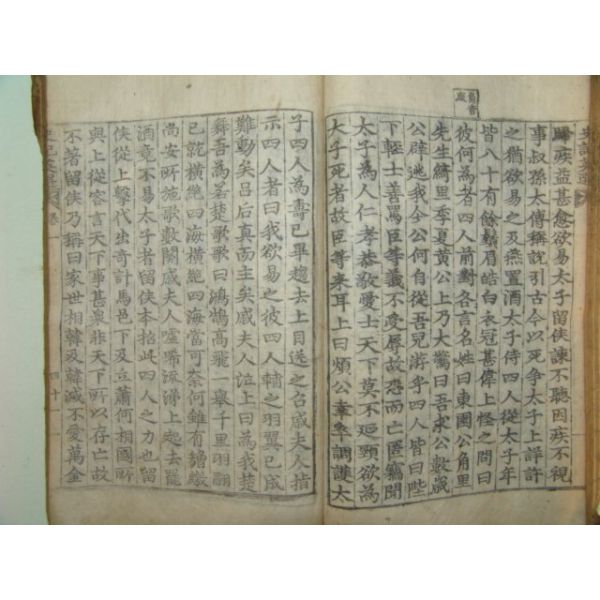 歸疾益甚愈欲易太子留侯諫不聽因疾不視
事叔孫太傅稱說引古今以死爭太子上詳許
之猶欲易之及燕置酒太子侍四人從太子年
皆八十有餘鬚眉皓白衣冠甚偉上怪之問曰
彼何爲者四人前對各言名姓曰東園公角里
先生綺里季夏黃公上乃大驚曰吾求公數歲
公辟逃我今公何自從吾兒游乎四人皆曰陛
下輕士善罵臣等義不受辱故恐而亡匿竊聞
太子爲人仁孝恭敬愛士天下莫不延頸欲爲
太子死者故臣等來耳上曰煩公幸卒調護太
子四人爲壽已畢趨去上目送之召戚夫人指
示四人者曰我欲易之彼四人輔之羽翼已成
難動矣呂后真而主矣戚夫人泣上曰爲我楚
舞吾爲若楚歌歌曰鴻鵠高飛一舉千里羽翮
已就橫絶四海橫絶四海當可奈何雖有矰繳
尚安所施歌數闋戚夫人噓唏流涕上起去罷
酒竟不易太子者留侯本招此四人之力也留
侯從上擊代出奇計馬邑下及立蕭何相國所
與上從容言天下事甚衆非天下所以存亡故
不著留侯乃稱曰家世相韓及韓滅不愛萬金
四十一